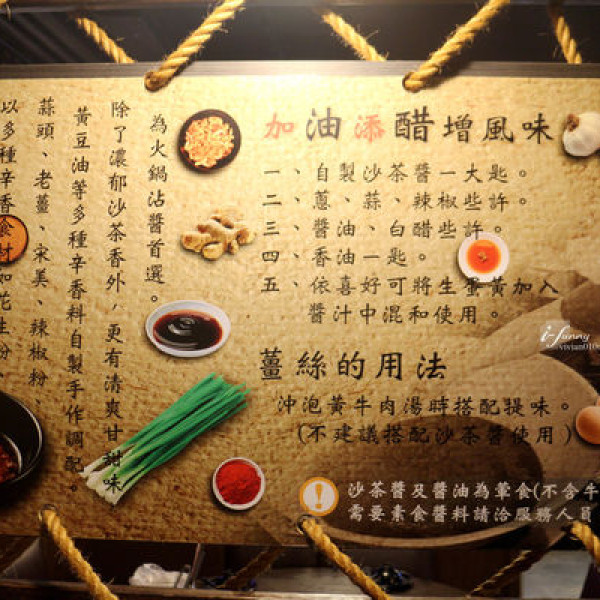 加油添醋增風味
一、自製沙茶醬一大匙。
二、蔥、蒜、辣椒些許。
三、醬油、白醋些許。
四、香油一匙。
五、依喜好可將生蛋黃加入
醬汁中混和使用。
薑絲的用法
沖泡黃牛肉湯時搭配提味。
(不建議搭配沙茶醬使用)
沙茶醬及醬油為葷食(不含牛
需要素食醬料請洽服務人員
以多種辛香食材如花生粉、
蒜頭、老薑、宋美、辣椒粉、
黃豆油等多種辛香料自製手作調配。
除了濃郁沙茶香外,更有清爽甘甜味
為火鍋沾醬首選。
i-funny
vivian010